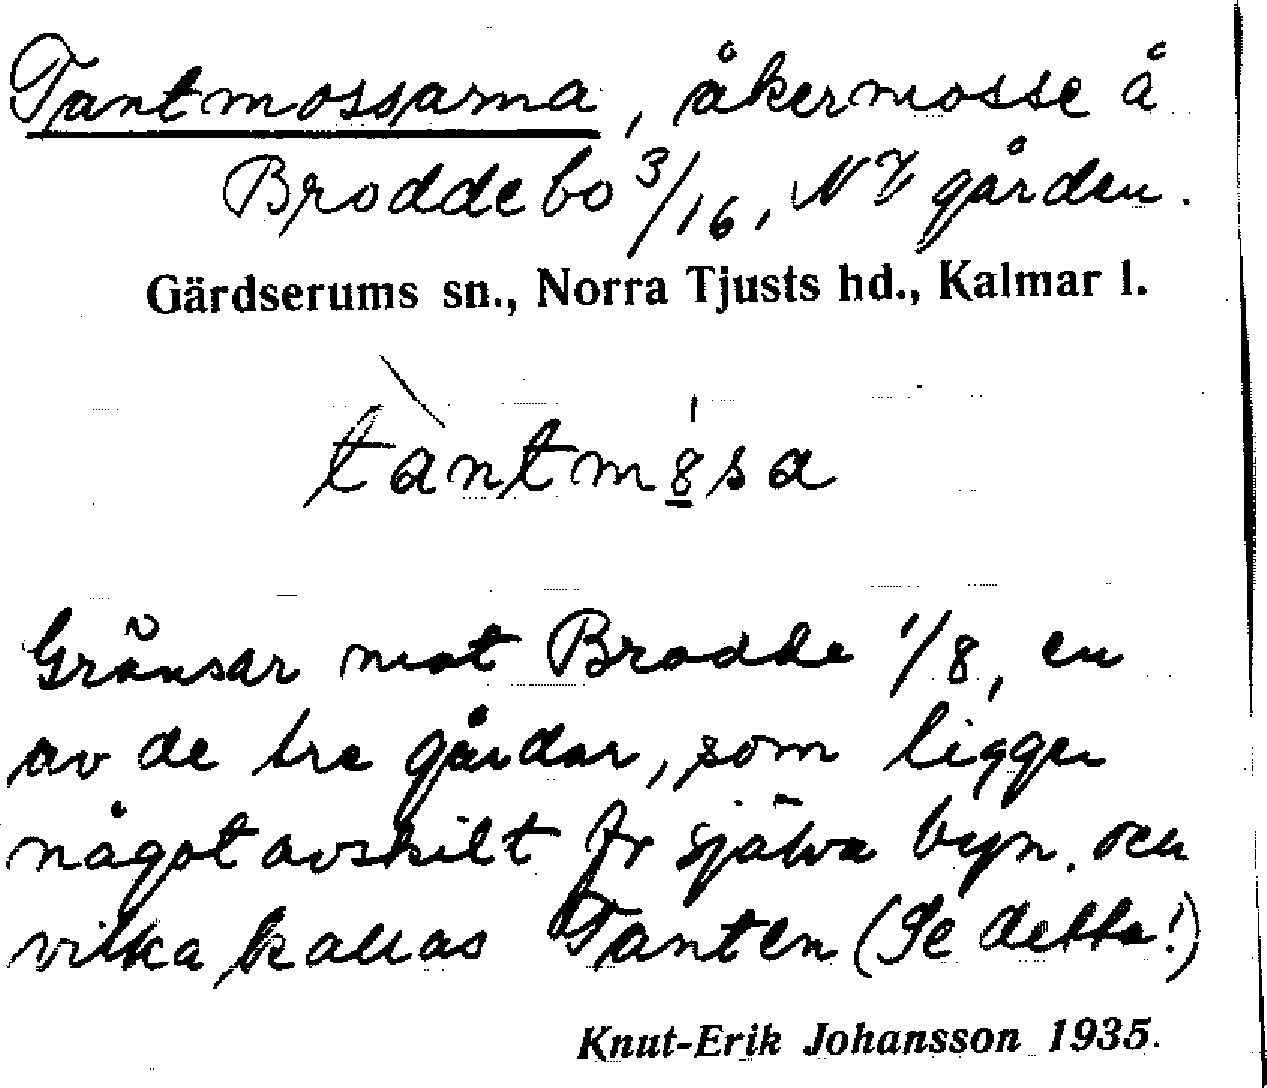 Tantmossarna, åkermosse å
Broddebo 3/16, NV gården.
Gärdserums sn., Norra Tjusts hd., Kalmar l.
tàntmo̲sa
Gränsar mot Brodde 1/8, en
av de tre gårdar, som ligger
något avskilt fr själva byn. och
vilka kallas Tanten (Se detta!)
Knut-Erik Johansson 1935.